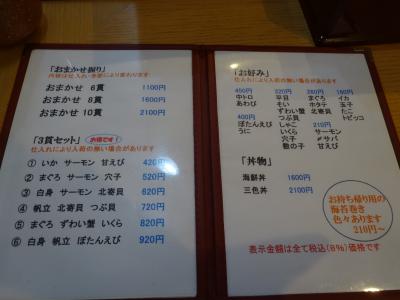 「おまかせ握り」
内容は仕入れ・季節により変わります
おまかせ 6貫 1100円
おまかせ 8貫 1600円
おまかせ 10貫 2100円
「3貫セット」 お得です!
仕入れにより入荷の無い場合があります
① いか サーモン 甘えび 420円
② まぐろ サーモン 穴子 520円
③ 白身 サーモン 北寄貝 620円
④ 帆立 北寄貝 つぶ貝 720円
⑤ まぐろ ずわい蟹 いくら 820円
⑥ 白身 帆立 ぼたんえび 920円
「お好み」
仕入れにより入荷の無い場合があります
450円 320円 260円 160円
中トロ 平目 まぐろ イカ
あわび そい ホタテ 玉子
ずわい蟹 北寄貝 たこ
400円 つぶ貝 トビッコ
ぼたんえび しゃこ 210円
うに いくら サーモン
穴子 〆サバ
数の子 甘えび
「丼物」
海鮮丼 1600円
三色丼 2100円
お持ち帰り用の
海苔巻き
色々あります
210円~
表示金額は全て税込(8%)価格です